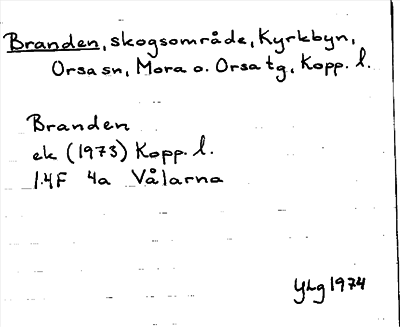 Branden, skogsområde, Kyrkbyn,
Orsa sn, Mora o. Orsa tg, Kopp. l.
Branden
ek (1973) Kopp. l.
14F 4a Vålarna
YLg 1974